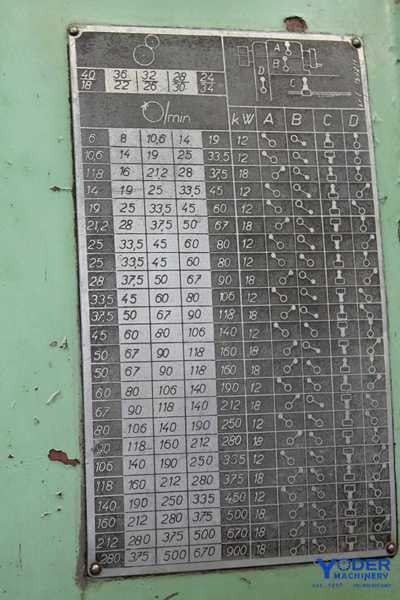 A
B
D
C
40 36 32 28 24
18 22 26 30 34
/min kW A B C D
6 8 10,6 14 19 12
10,6 14 19 25 33,5 12
11,8 16 21,2 28 37,5 18
14 19 25 33,5 45 12
19 25 33,5 45 60 12
21,2 28 37,5 50 67 18
25 33,5 45 60 80 12
25 33,5 45 60 80 12
28 37,5 50 67 90 18
33,5 45 60 80 106 12
37,5 50 67 90 118 18
45 60 80 106 140 12
50 67 90 118 160 18
50 67 90 118 160 18
60 80 106 140 190 12
67 90 118 140 212 18
80 106 140 190 250 12
90 118 160 212 280 18
106 140 190 250 335 12
118 160 212 280 375 18
140 190 250 335 450 12
160 212 280 375 500 18
212 280 375 500 670 18
280 375 500 670 900 18
YODER
MACHINERY
EST. 1957